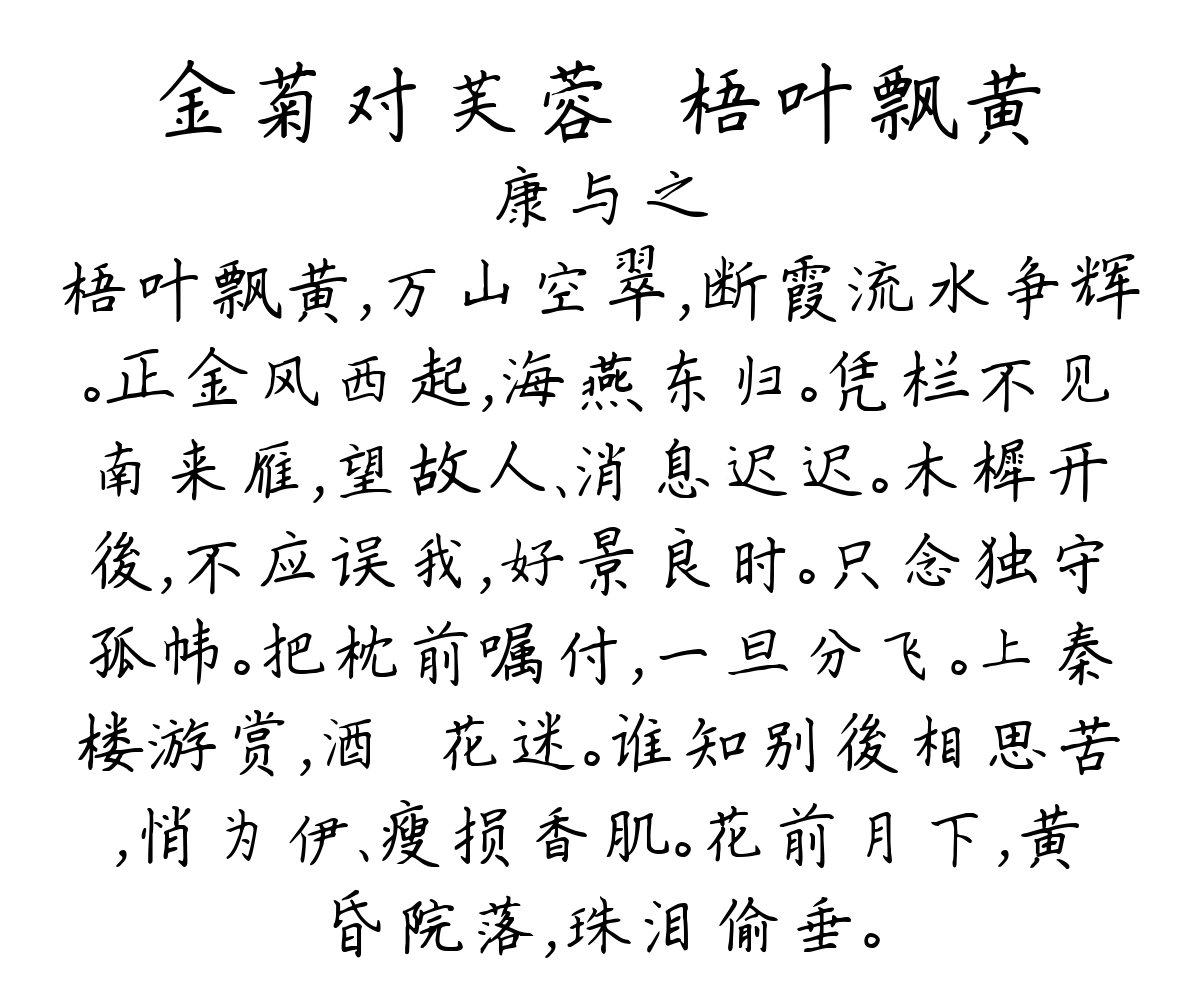 金菊对芙蓉 梧叶飘黄
康与之
梧叶飘黄,万山空翠,断霞流水争辉
。正金风西起,海燕东归。凭栏不见
南来雁,望故人、消息迟迟。木樨开
後,不应误我,好景良时。只念独守
孤帏。把枕前嘱付,一旦分飞。上秦
楼游赏,酒 花迷。谁知别後相思苦
,悄为伊、瘦损香肌。花前月下,黄
昏院落,珠泪偷垂。